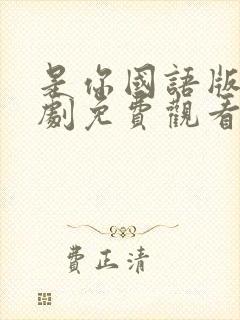 是你國語版
劇免費觀看
費正清